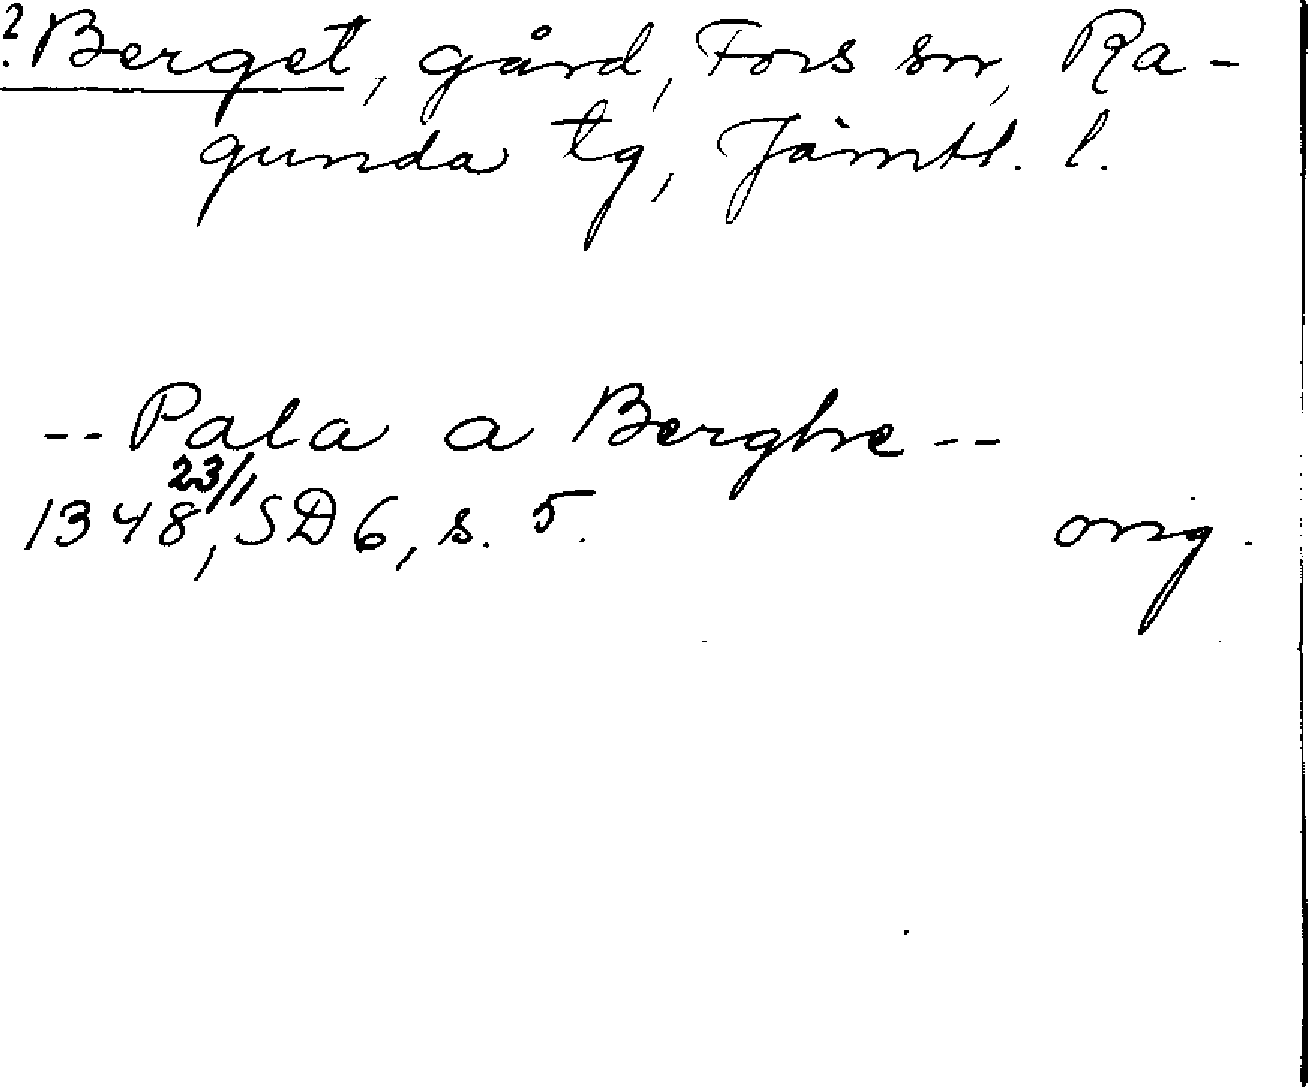 ? Berget, gård, Fors sn, Ra-
gunda tg, Jämtl. l.
-- Pala a Berghe --
1348 23/1, SD 6, s. 5.
orig.